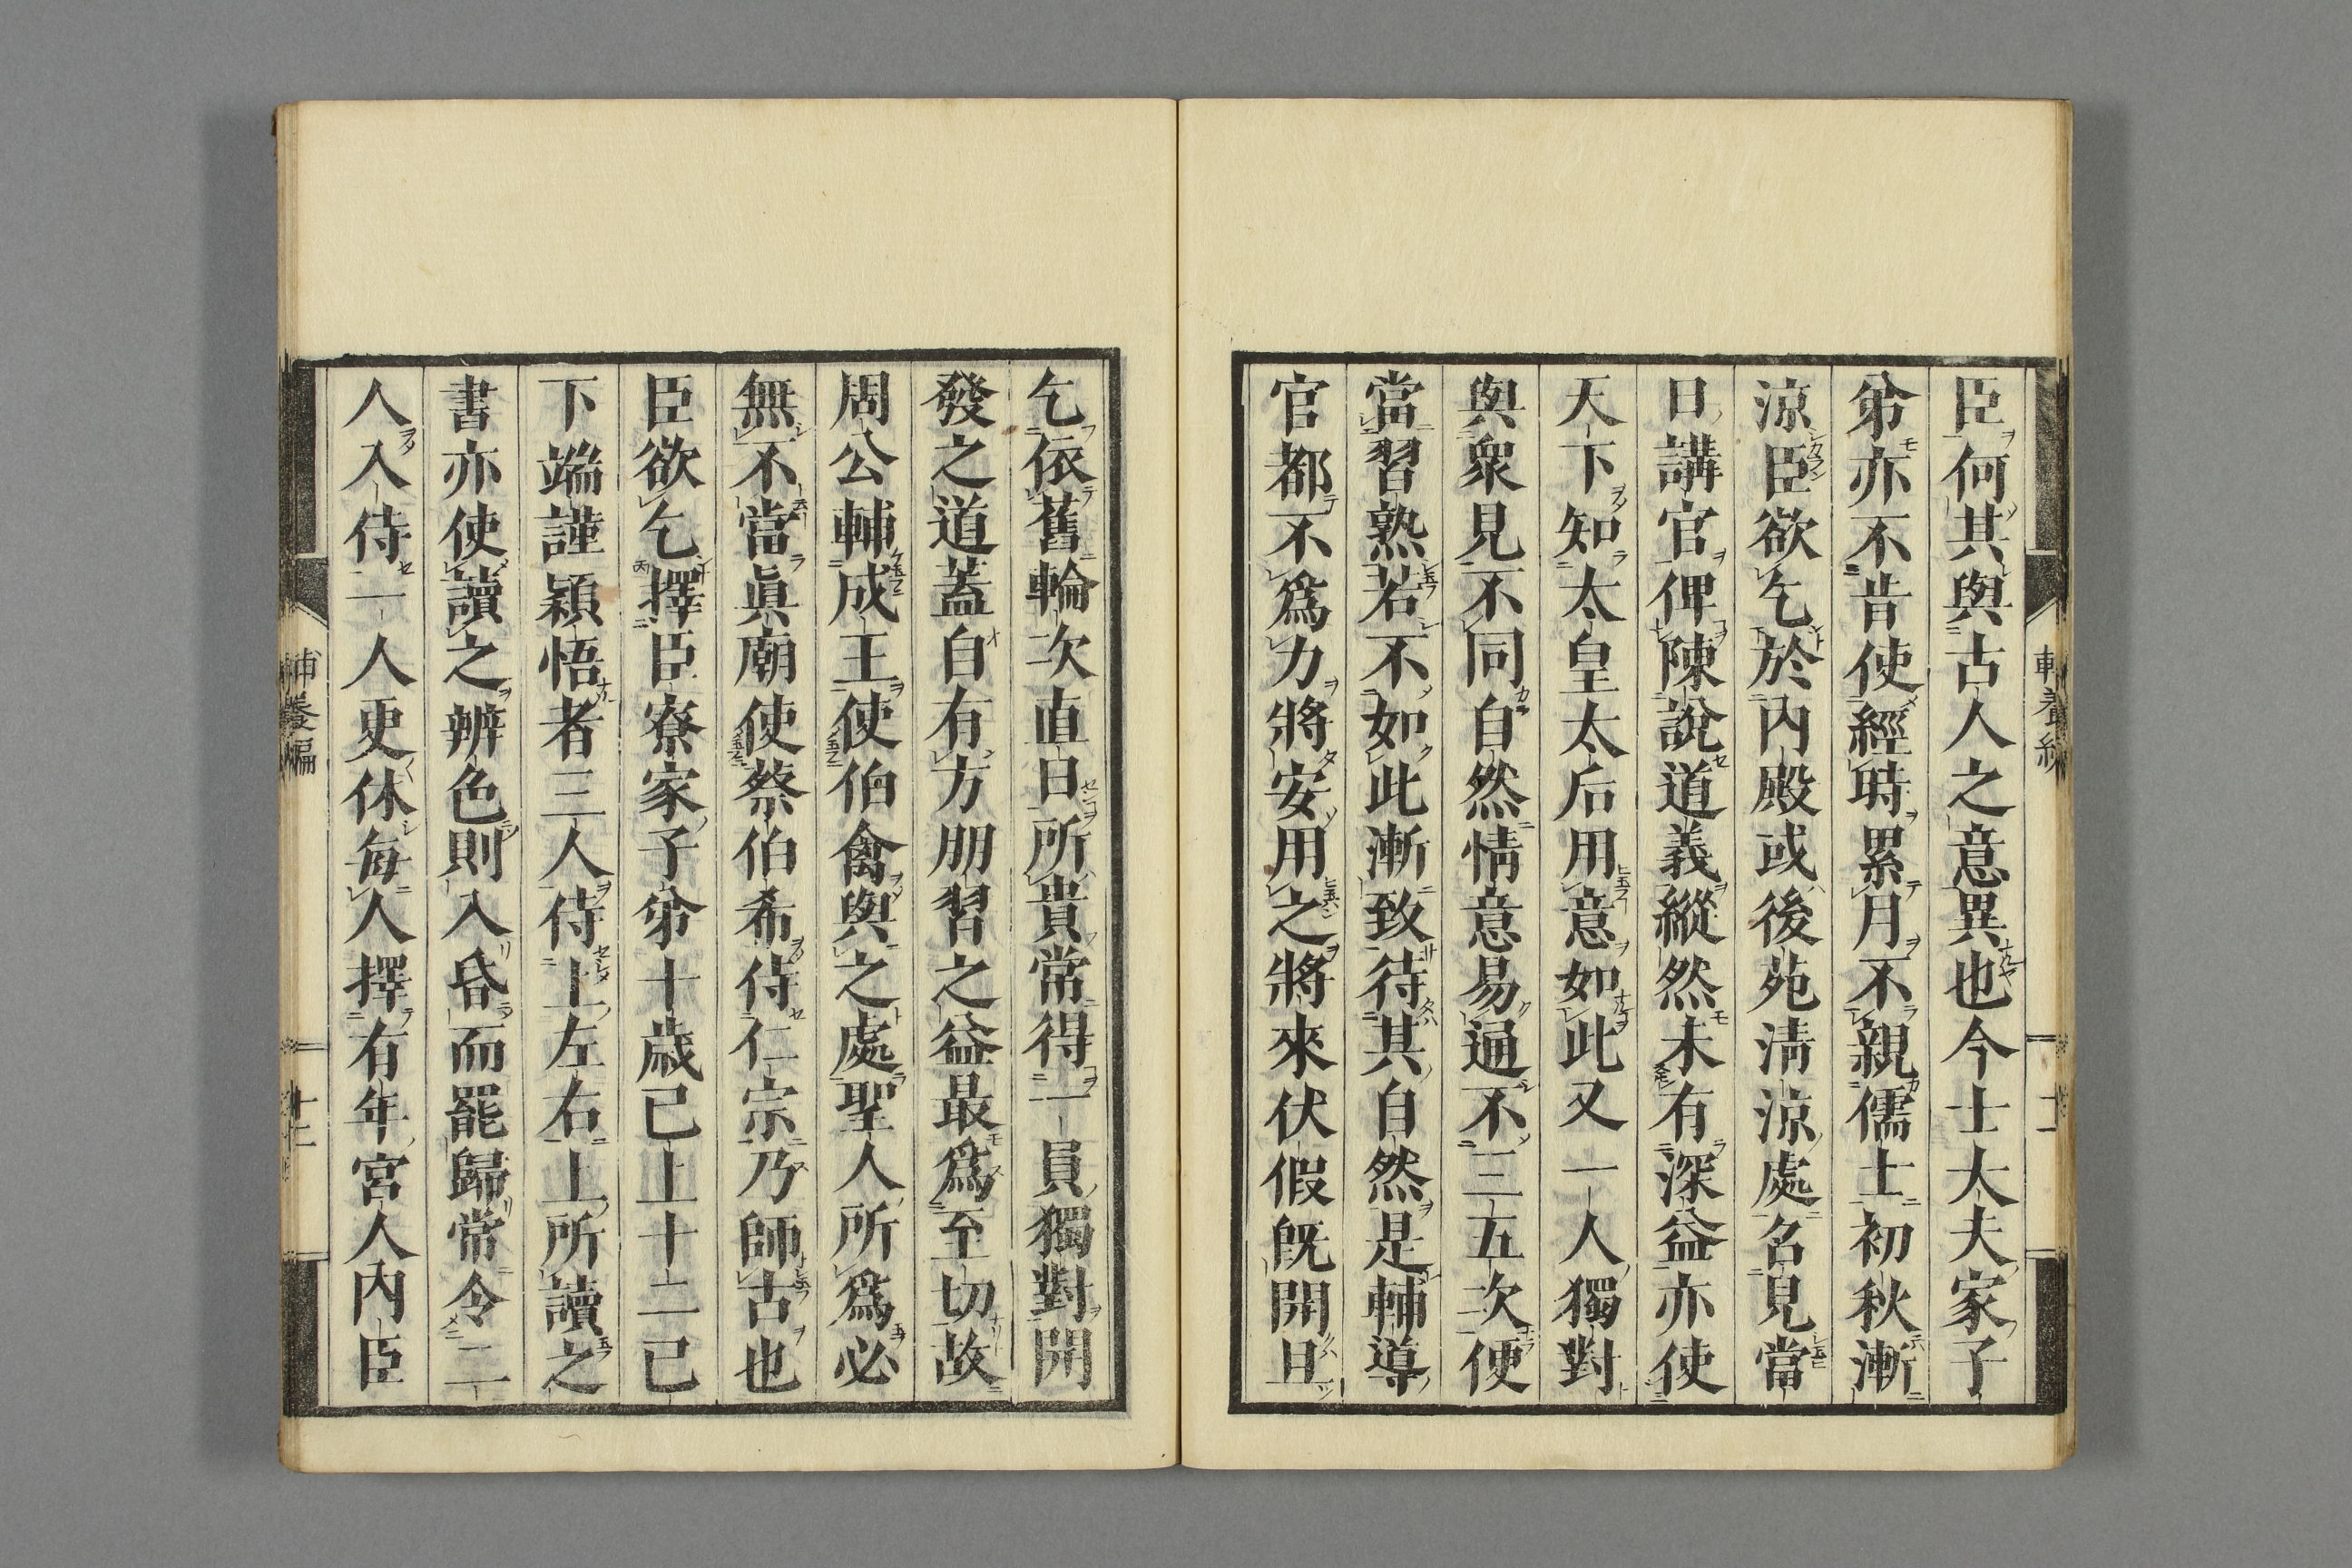 臣何其與古人之意異也今士大夫家子
弟亦不肯使經時累月不親儒士初秋漸
涼臣欲乞於內殿或後苑淸涼處名見當
日講官俾陳說道義縱然未有深益亦使
天下知太皇太后用意如此又一人獨對
與衆見不同自然情意易通不三五次便
當習熟若不如此漸致待其自然是輔導
官都不爲力將安用之將來伏假旣開且
乞依舊輪次直日所貴常得一員獨對開
發之道蓋自有方朋習之益最爲至切故
周公輔成王使伯禽與之處聖人所爲必
無不當眞廟使蔡伯希侍仁宗乃師古也
臣欲乞擇臣寮家子弟十歲已上十二已
下端謹穎悟者三人侍上左右上所讀之
書亦使讀之辨色則入昏而罷歸常令二
人入侍一人更休每人擇有年宮人內臣
輔養編
十二